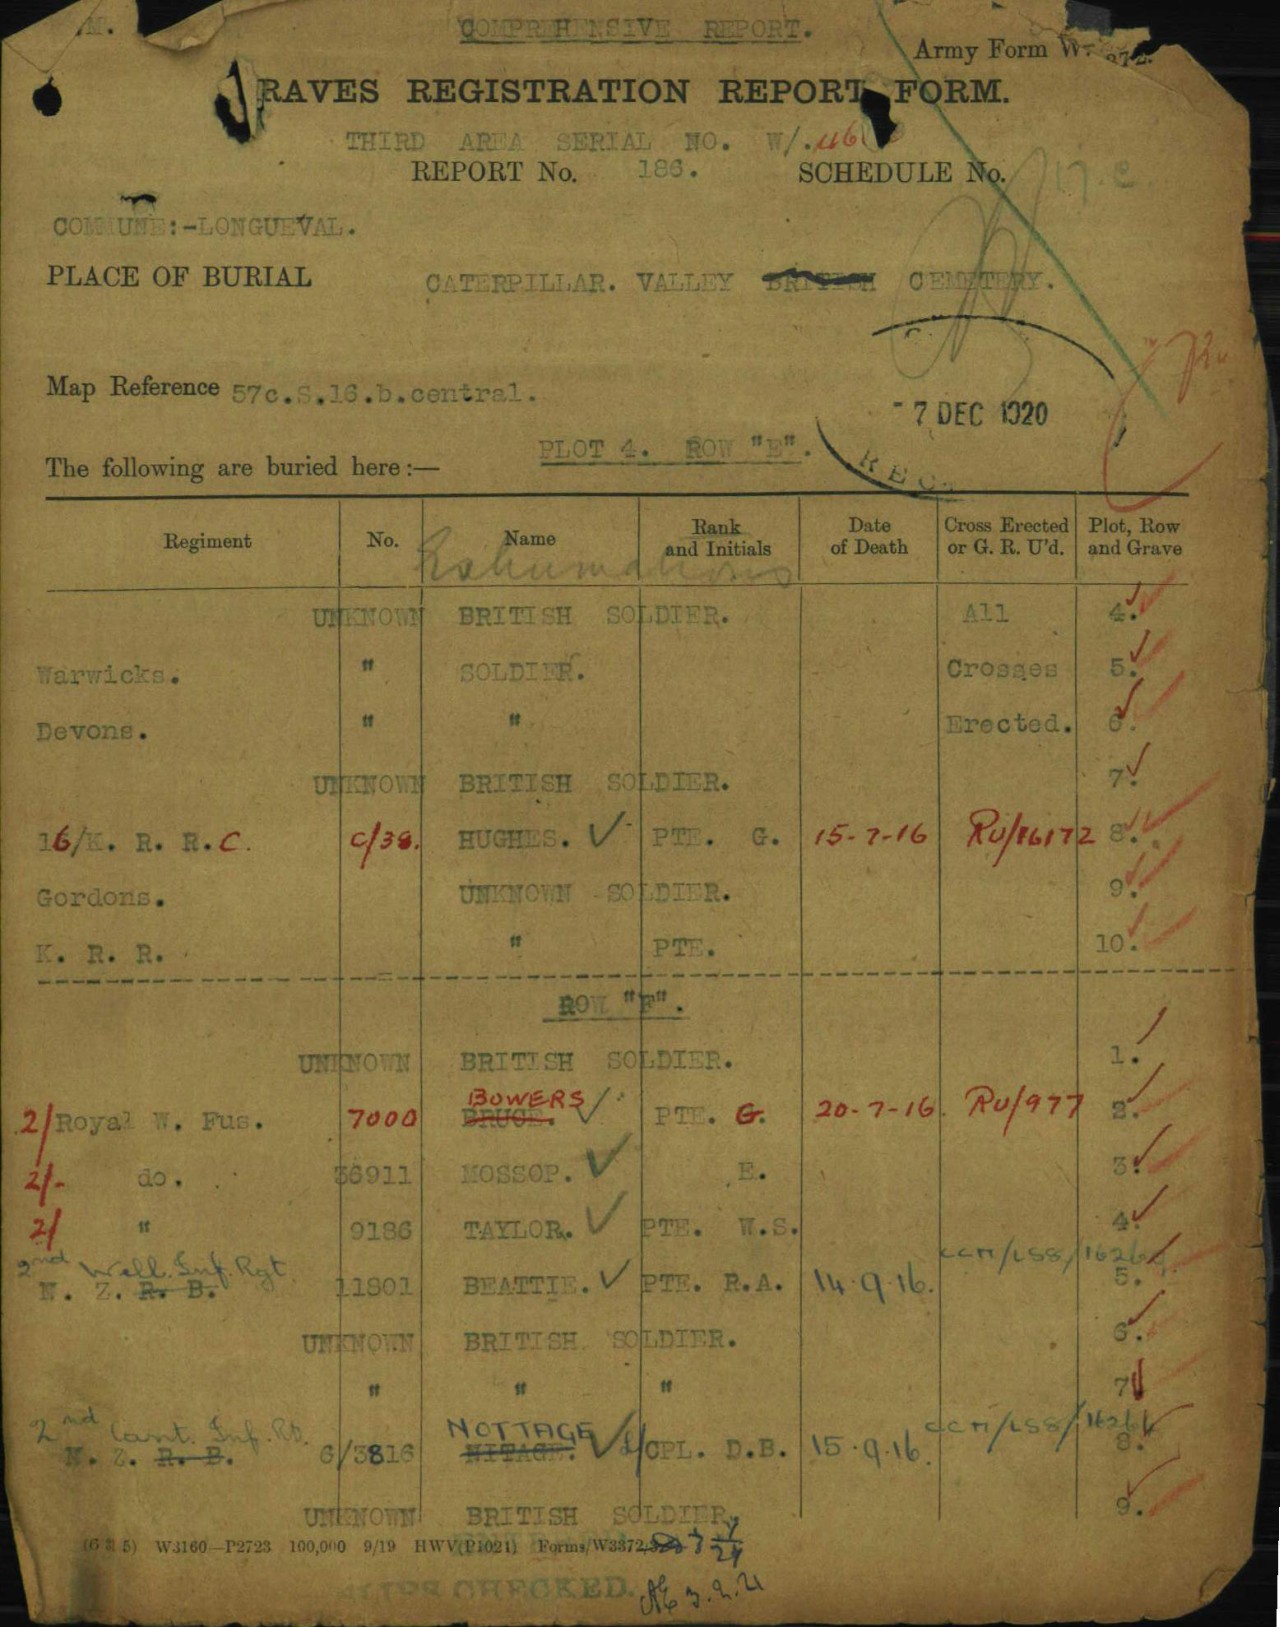 M.
COMPREHENSIVE REPORT.
Army Form W.
RAVES REGISTRATION REPORT FORM.
THIRD AREA SERIAL NO. W/.46
REPORT No. 186. SCHEDULE No. 17.C.
COMMUNE:-LONGUEVAL.
PLACE OF BURIAL CATERPILLAR. VALLEY BRITISH CEMETERY.
Map Reference 57c.S.16.b.central.
-7 DEC 1920
REC
PLOT 4. ROW "E".
The following are buried here:—
Regiment No. Name Rank and Initials Date of Death Cross Erected or G. R. U'd. Plot, Row and Grave
Exhumations
UNKNOWN BRITISH SOLDIER. All 4.
Warwicks. " SOLDIER. Crosses 5.
Devons. " " Erected. 6.
UNKNOWN BRITISH SOLDIER. 7.
16/K. R. R.C. C/38. HUGHES. PTE. G. 15-7-16 RU/16172 8.
Gordons. UNKNOWN SOLDIER. 9.
K. R. R. " PTE. 10.
ROW "F".
UNKNOWN BRITISH SOLDIER. 1.
BOWERS
2/Royal W. Fus. 7000 BRUCE. PTE. G. 20-7-16. RU/977 2.
2/- do. 36911 MOSSOP. E. 3.
2/ " 9186 TAYLOR. PTE. W.S. 4.
2nd Well. Inf. Rgt. CCM/LSS/
N. Z. R. B. 11801 BEATTIE. PTE. R.A. 14.9.16. 5.
UNKNOWN BRITISH SOLDIER. 6.
" " " 7
2nd Cant. Inf. NOTTAGE CCM/LSS/
N. Z. R. B. 6/3816 L/CPL. D.B. 15.9.16. 8.
UNKNOWN BRITISH SOLDIER. 9.
W3160—P2723 100,000 9/19 HWV(P1021) Forms/W3372/
CHECKED.
3.2.21